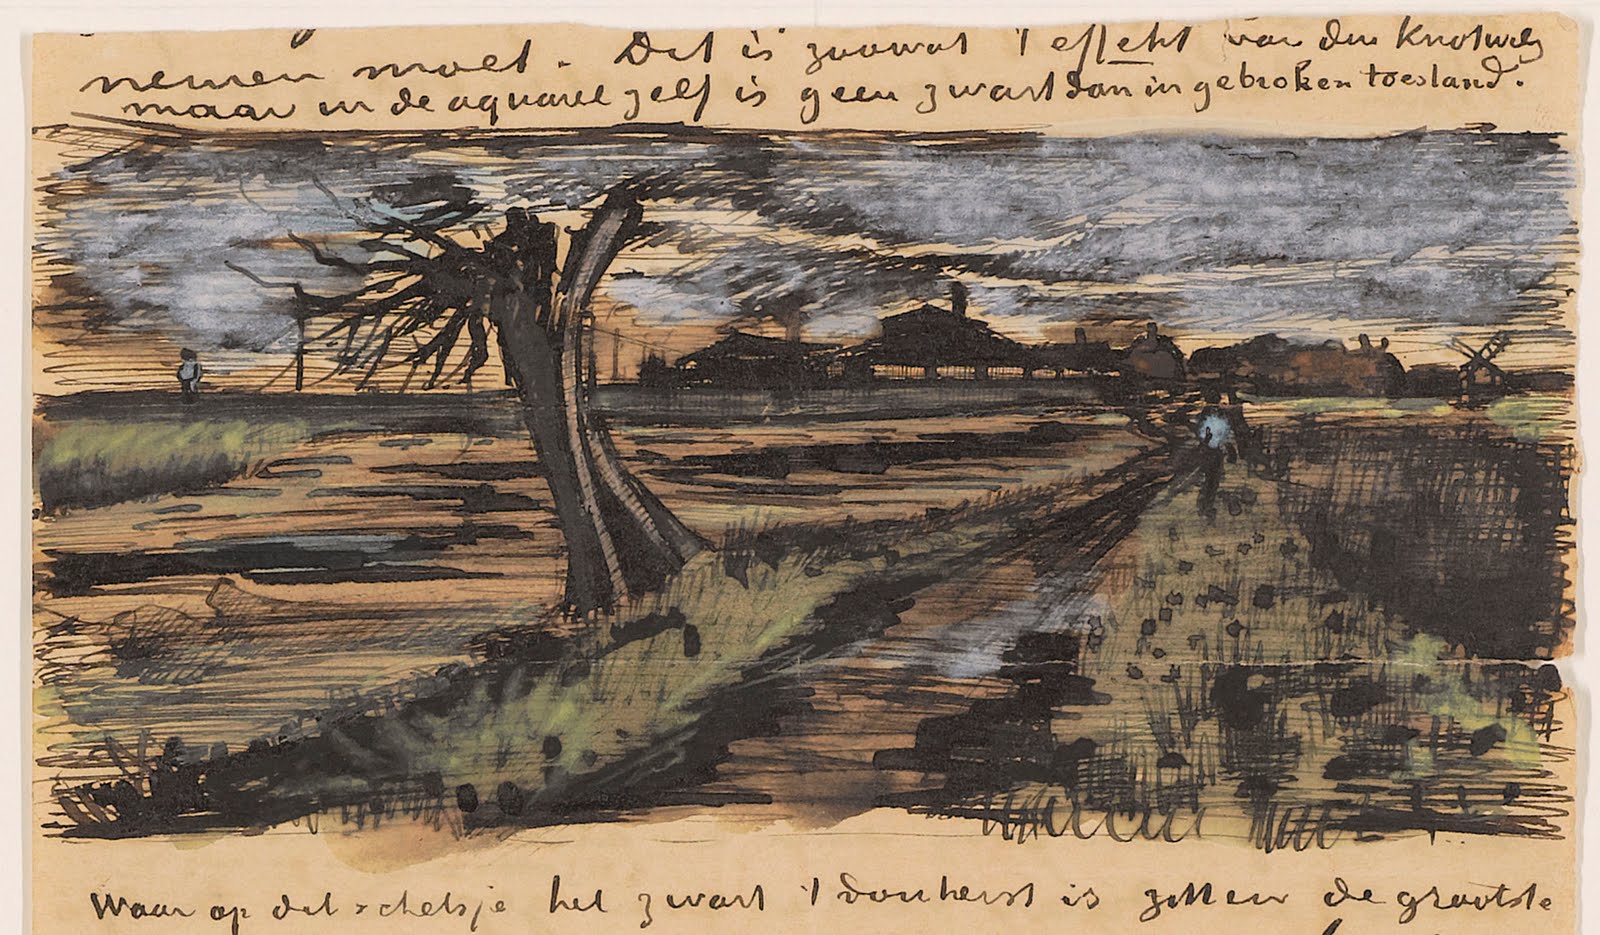 nemen moet. Dit is zoowat 't effekt van den Knotwilg
maar in de aquarel zelf is geen zwart dan in gebroken toestand.
Waar op dat schetsje het zwart 't donkerst is zitten de grootste